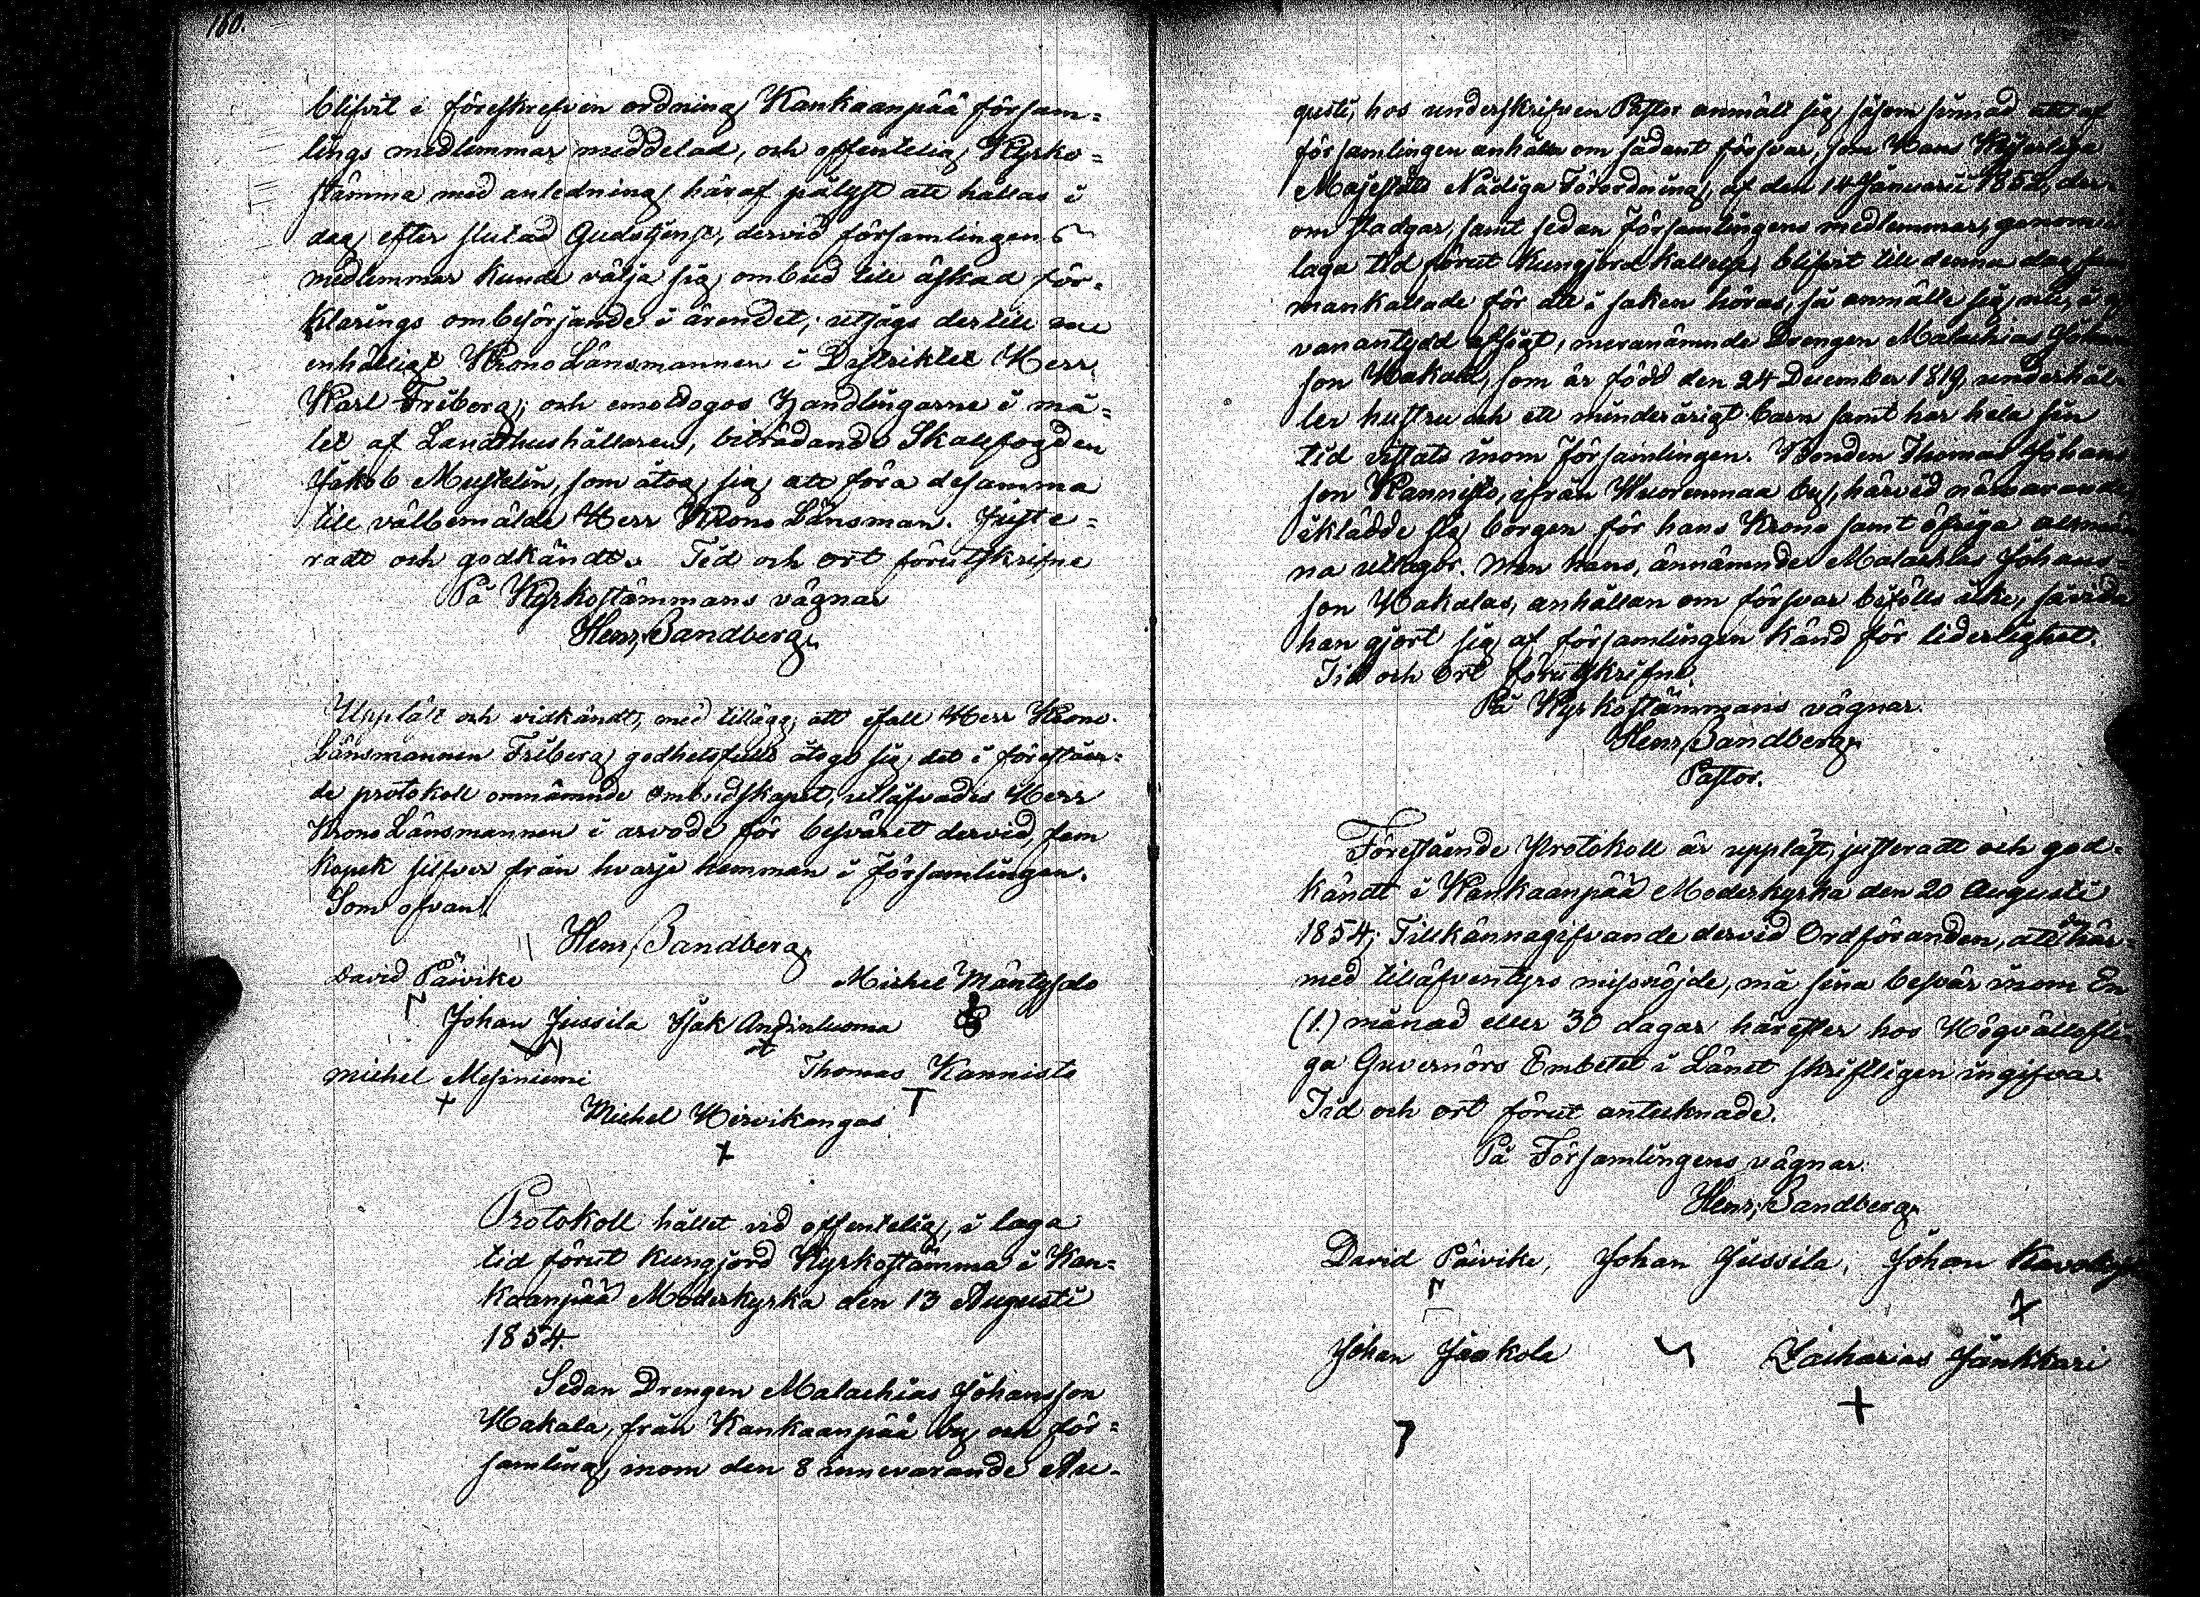 160.
blifvit i föreskrefven ordning Kankaanpää försam=
lings medlemmar meddelad, och offentelig Kyrko=
stämma med anledning häraf pålyst att hållas i
dag efter slutad Gudstjenst, dervid församlingens
medlemmar kunde välja sig ombud till äskad för=
klarings ombesörjande i ärendet; utsågs dertill nu
enhälligt KronoLänsmannen i Distriktet Herr
Karl Friberg; och emottogos Handlingarne i må=
let af Landthushållaren, biträdande Skallfogden
Jakob Mustelin, som åtog sig att föra desamma
till välbemälde Herr Krono Länsman. Juste=
radt och godkändt. Tid och ort förutskrifne
På Kyrkostämmans vägnar
Henr, Sandberg.
Uppläst och vidkändt, med tillägg, att ifall Herr Krono-
Länsmannen Friberg godhetsfullt åtoge sig det i förestäen=
de protokoll omnämnde ombudskapet, utläfvades Herr
Krono Länsmannen i arvode för besväret dervid, fem
kopek silfver från hvarje hemman i församlingen.
Som ofvan.
Henr, Sandberg.
David Päivike Michel Mäntysalo
Johan Jussila Isak Anfinluoma
michel Mesiniemi Thomas Kannisto
Michel Hirvikangas
Protokoll hållet vid offentelig, i laga
tid förut kungjord Kyrkostämma i Kan=
kaanpää Moderkyrka den 13 Augusti
1854.
Sedan Drengen Malachias Johansson
Hakala, från Kankaanpää by och för=
samling, inom den 8 innevarande Au-
gusti, hos underskrifven Pastor anmält sig såsom sinnad att af
församlingen anhålla om sådant försvar, som Hans Kejserliga
Majestäts Nådiga Förordning, af den 14 Januarii 1852, der=
om stadgar, samt sedan församlingens medlemmar, genom i
laga tid förut kungjord kallelse, blifvit till denna dag sam
mankallade för att i saken höras, så anmälte sig nu, i
vanantydd afsigt, meranämnde Drengen Malachias Johans
son Hakala, som är född den 24 December 1819, underhål=
ler hustru och ett minderårigt barn samt har hela sin
tid vistats inom församlingen. Bonden Thomas Johans
son Kannisto, ifrån Wuorenmaa by, härvid närvarande
iklädde sig borgen för hans Krono samt öfriga allmän
na utlagor. Men hans, ännämnde Malachias Johans=
son Hakalas, anhållan om försvar bifölls icke, såvida
han gjort sig af församlingen känd för liderlighet.
Tid och Ort förutskrifne.
På Kyrkostämmans vägnar.
Henr, Sandberg.
Pastor.
Förestående Protokoll är uppläst, justeradt och god=
kändt i Kankaanpää Moderkyrka den 20 Augusti
1854; Tillkännagifvande dervid Ordföranden, att den här=
med tilläfventyrs missnöjde, må sina besvär inom En
(1.) månad eller 30 dagar härefter hos Högvällofli
ga Guvernörs Embetet i Länet skriftligen ingifva.
Tid och ort förut antecknade.
På Församlingens vägnar.
Henr, Sandberg.
David Päivike, Johan Jussila, Johan
Johan Jaakola Zacharias Jankkari